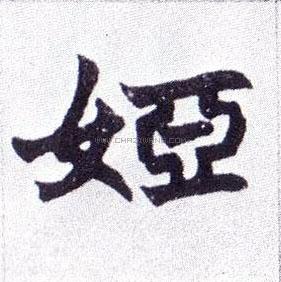 婭
WWW.CHAZIWANG.COM